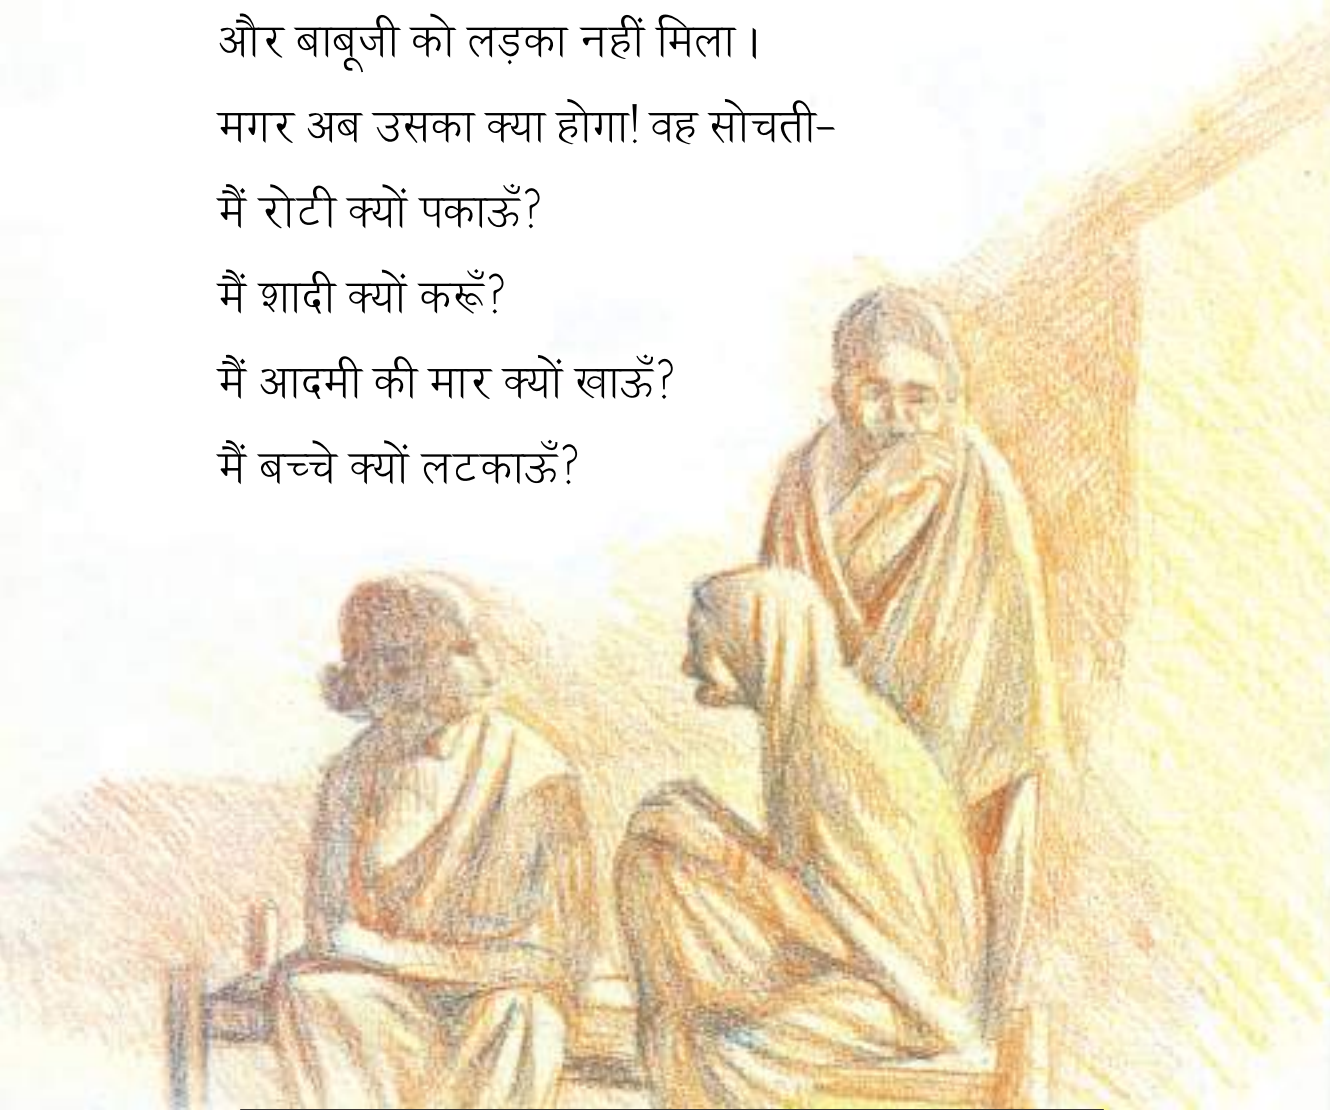 और बाबूजी को लड़का नहीं मिला।
मगर अब उसका क्या होगा! वह सोचती-
मैं रोटी क्यों पकाऊँ?
मैं शादी क्यों करूँ?
मैं आदमी की मार क्यों खाऊँ?
मैं बच्चे क्यों लटकाऊँ?